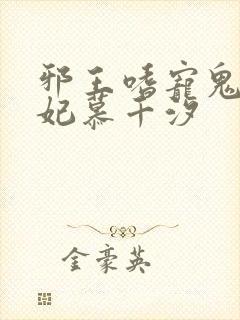 邪王嗜宠鬼
妃慕千汐
金豪英